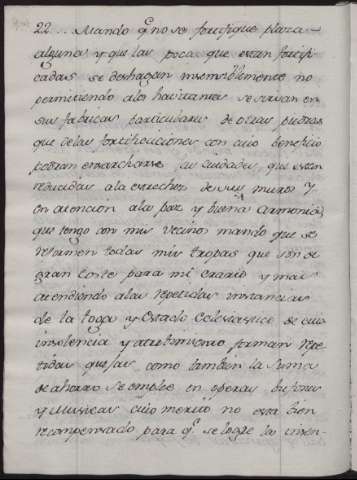 22... Mando q.e no se fortifique plaza
alguna y que las pocas que estan fortifi
cadas se deshagan insensiblemente no
permitiendo a los havitantes se sirvan en
sus fabricas particulares de otras piedras
que de las fortificaciones con cuio beneficio
podran ensancharse las ciudades, que estan
reducidas a la estrechez de sus muros y
en atencion a la paz y buena armonia
que tengo con mis vecinos mando que se
reformen todas mis tropas que son de
gran coste para mi erario y mas
atendiendo a las repetidas instancias
de la toga y Estado Eclesiastico de cuia
insolencia y atrevimiento forman repe
tidas quejas como tambien la suma
de ahorro se emplee en operas bufones
y Musicas cuio merito no está bien
recompensado para q.e se logre la inten-